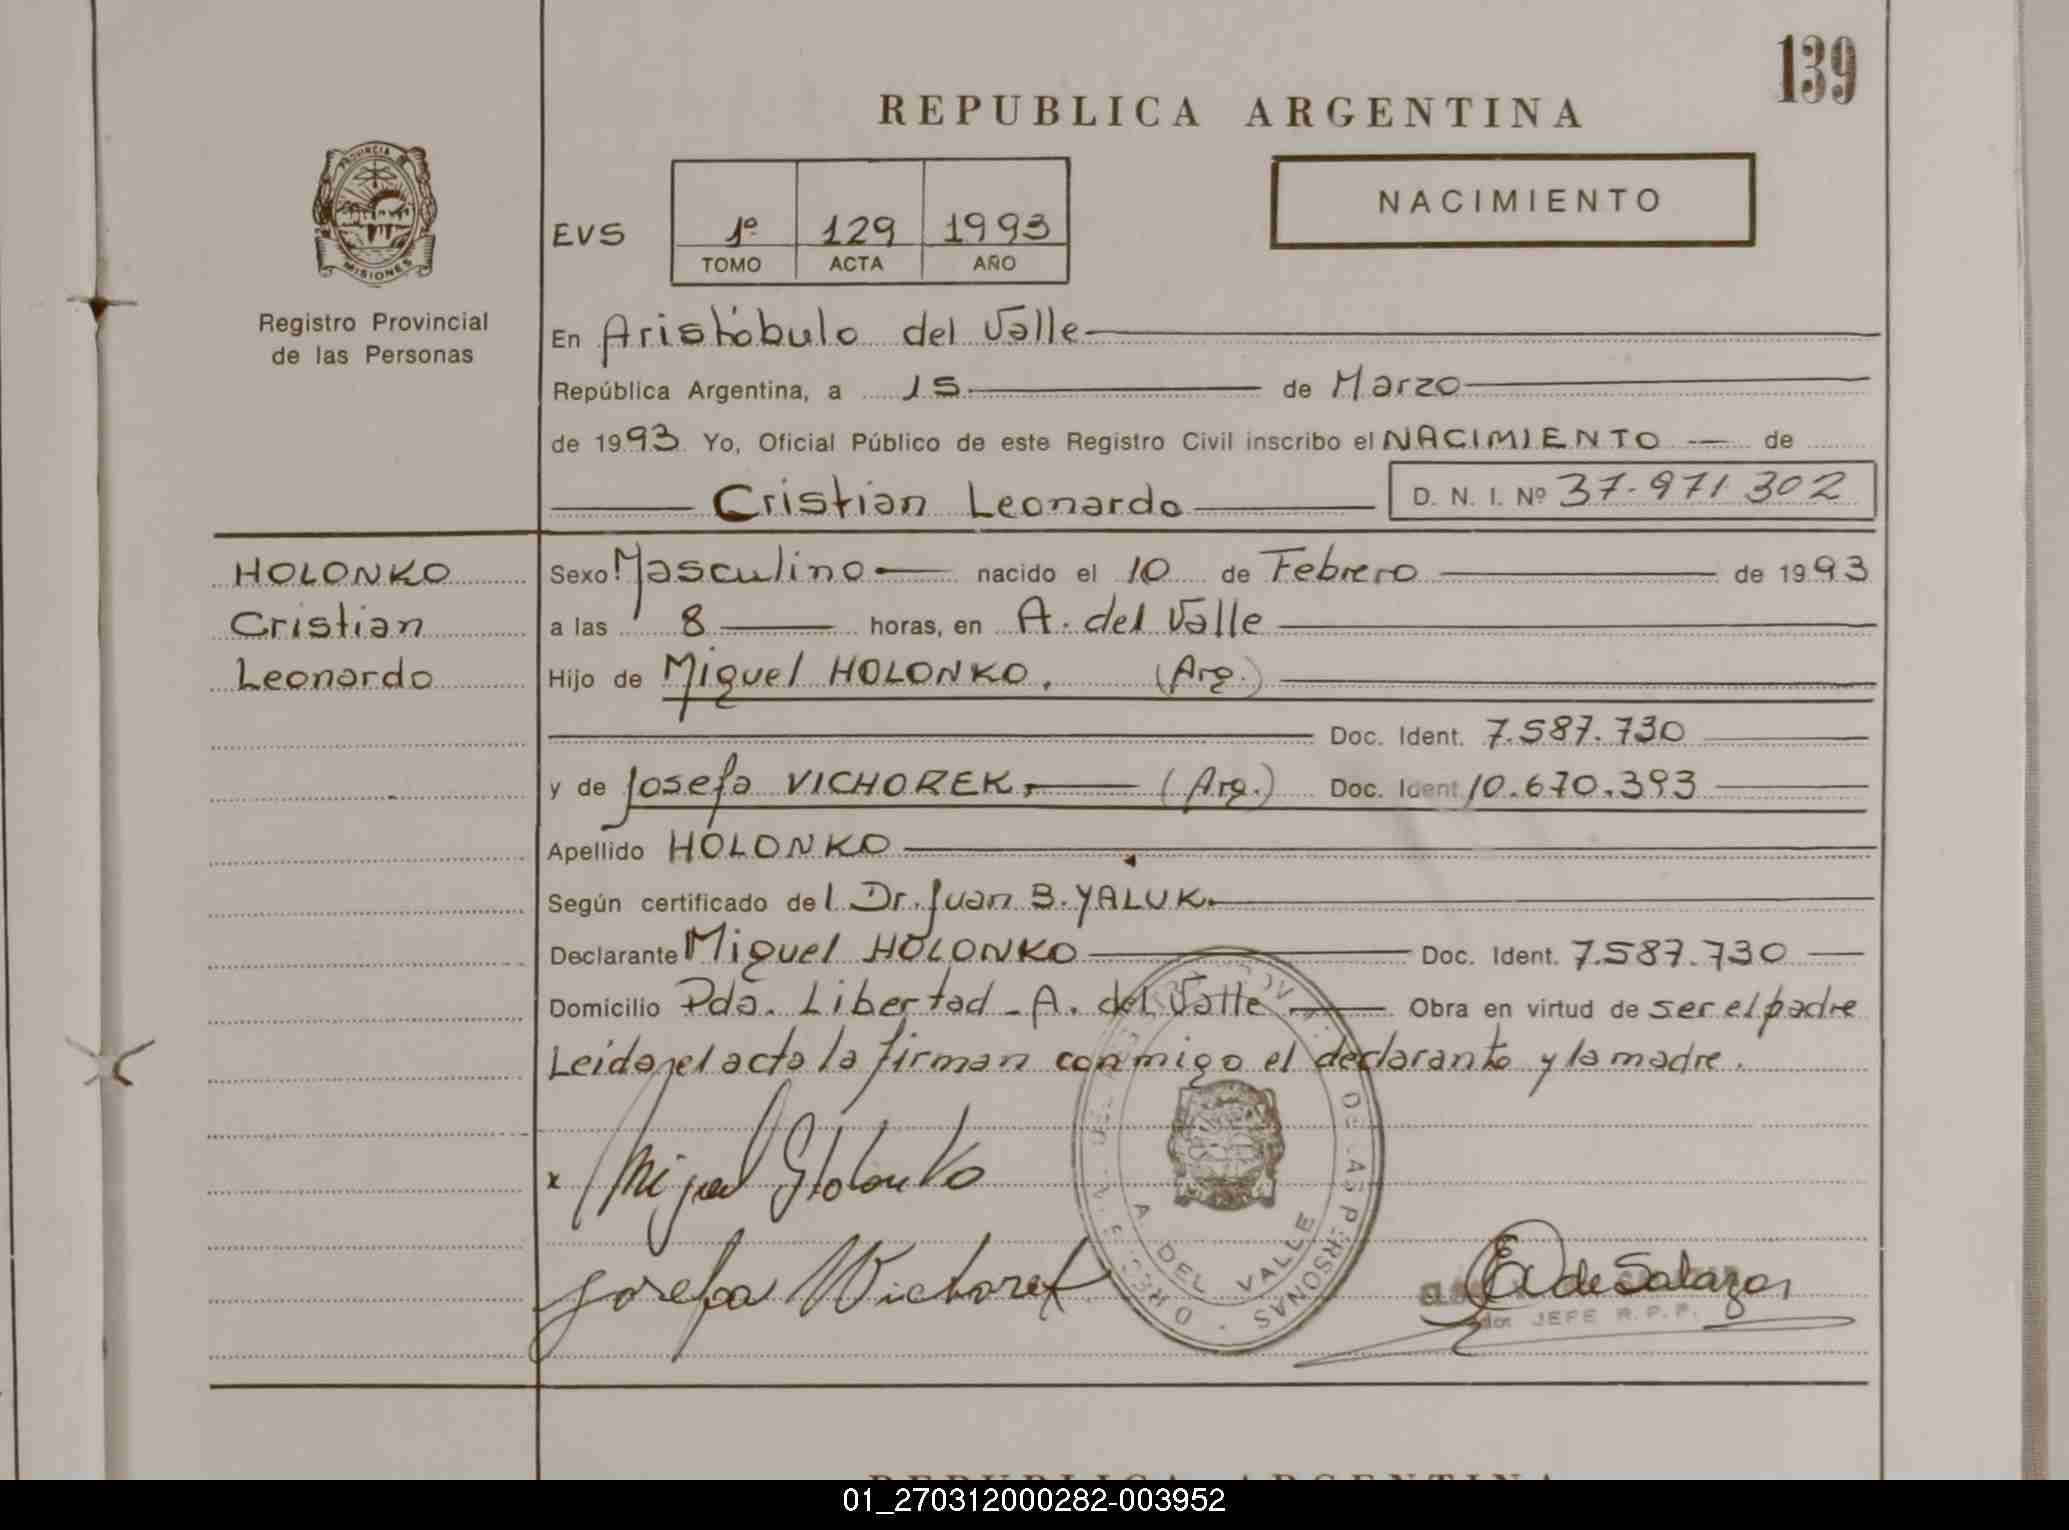 139
REPUBLICA ARGENTINA
PROVINCIA DE
MISIONES
Registro Provincial
de las Personas
EVS
1º 129 1993
TOMO ACTA AÑO
NACIMIENTO
En Aristóbulo del Valle
República Argentina, a 15 de Marzo
de 1993 Yo, Oficial Público de este Registro Civil inscribo el NACIMIENTO — de
Cristian Leonardo D. N. I. Nº 37.971 302
HOLONKO
Cristian
Leonardo
Sexo Masculino nacido el 10 de Febrero de 1993
a las 8 horas, en A. del Valle
Hijo de Miguel HOLONKO. (Arg.)
Doc. Ident. 7.587.730
y de Josefa VICHOREK. (Arg.) Doc. Ident 10.670.393
Apellido HOLONKO
Según certificado del Dr. Juan B. YALUK.
Declarante Miguel HOLONKO Doc. Ident. 7.587.730
Domicilio Pda. Libertad - A. del Valle Obra en virtud de ser el padre
Leida el acta la firman conmigo el declarante y la madre.
x Miguel Holonko
Josefa Wichorek
DE LAS PERSONAS
A DEL VALLE
E. de Salazar
JEFE R.P.P.
REPUBLICA ARGENTINA
01_270312000282-003952